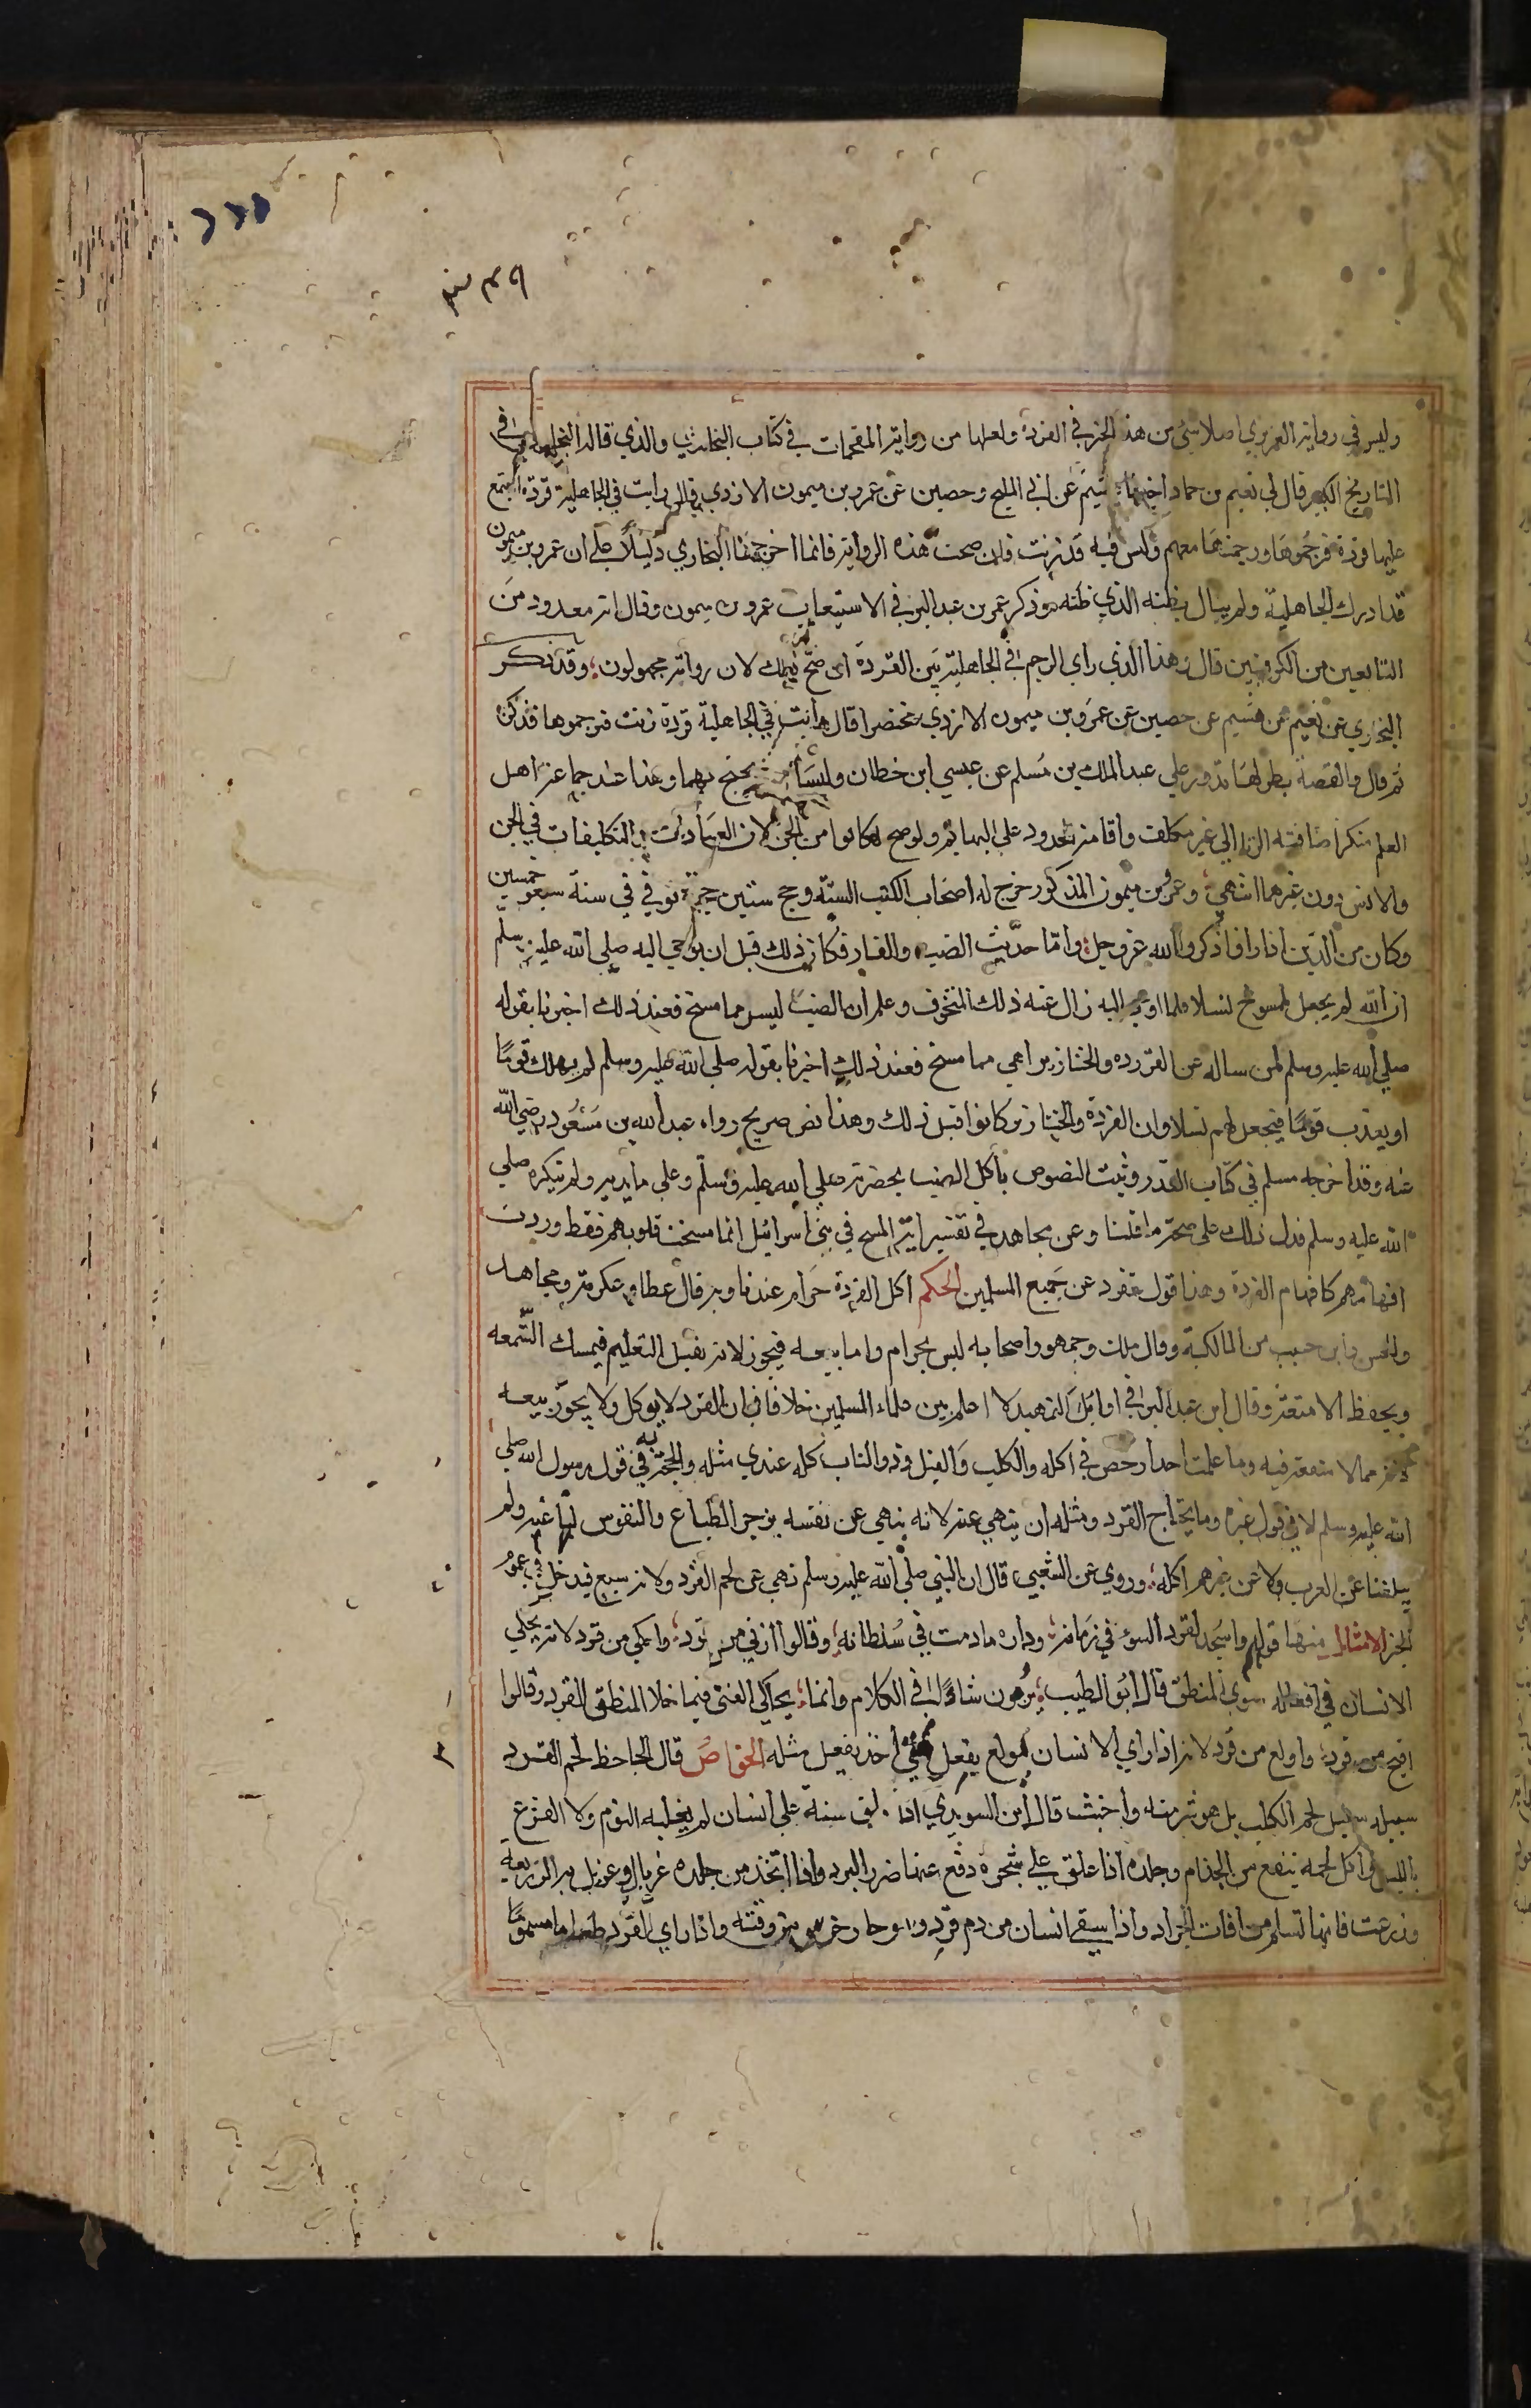 ٣٤٩
وليس في رواية الفربري اصلا شئ من هذا الخبر في القردة ولعلها من رواية المقحمات في كتاب البخاري والذي قاله البخاري في
التاريخ الكبير قال لي نعيم بن حماد اخبرنا هشيم عن ابي المليح وحصين عن عمرو بن ميمون الازدي قال رايت في الجاهلية قردة اجتمع
عليها قردة فرجموها ورجمتها معهم وليس فيه قد زنت فان صحت هذه الرواية فانما اخرجها البخاري دليلا على ان عمرو بن ميمون
قد ادرك الجاهلية ولم يبال بظنه الذي ظنه وذكر عمر بن عبد البر في الاستيعاب عمرو بن ميمون وقال انه معدود من
التابعين من الكوفيين قال وهذا الذي راي الرجم في الجاهلية بين القردة ان صح ذلك لان رواته مجهولون وقد ذكر
البخاري عن نعيم عن هشيم عن حصين عن عمرو بن ميمون الازدي مختصرا قال رايت في الجاهلية قردة زنت فرجموها فذكره
ثم قال والقصة بطولها تدور علي عبد الملك بن مسلم عن عيسي ابن حطان وليسا ممن يحتج بهما وهذا عند جماعة اهل
العلم منكر اضافة الزنا الي غير مكلف واقامة الحدود علي البهايم ولو صح لكانوا من الجن لان العبادات والتكليفات في الجن
والانس دون غيرهما انتهي وعمرو بن ميمون المذكور خرج له اصحاب الكتب الستة وحج ستين حجة توفي في سنة خمس وسبعين
وكان من الذين اذا راوا ذكروا الله عز وجل واما حديث الضب والفار فكان ذلك قبل ان يوحي اليه صلي الله عليه وسلم
ان الله لم يجعل لمسوخ نسلا فلما اوحي اليه زال عنه ذلك التخوف وعلم ان الضب ليس مما مسخ فعند ذلك اخبرنا بقوله
صلي الله عليه وسلم لمن ساله عن القردة والخنازير اهي مما مسخ فعند ذلك اخبرنا بقوله صلي الله عليه وسلم لم يهلك قوما
او يعذب قوما فيجعل لهم نسلا وان القردة والخنازير كانوا قبل ذلك وهذا نص صريح رواه عبد الله بن مسعود رضي الله
عنه وقد اخرجه مسلم في كتاب القدر وثبت النصوص باكل الضب بحضرته صلي الله عليه وسلم وعلي مايدته ولم ينكره صلي
الله عليه وسلم فدل ذلك علي صحة ما قلنا وعن مجاهد في تفسير اية المسخ في بني اسرائيل انما مسخت قلوبهم فقط وردت
افهامهم كافهام القردة وهذا قول تفرد عن جميع المسلمين الحكم اكل القردة حرام عندنا وبه قال عطا وعكرمة ومجاهد
والحسن وابن حبيب من المالكية وقال ملك وجمهور اصحابه ليس بحرام واما بيعه فيجوز لانه يقبل التعليم فيمسك الشمعة
ويحفظ الامتعة وقال ابن عبد البر في اوائل التمهيد لا اعلم بين علماء المسلمين خلافا في ان القرد لا يوكل ولا يجوز بيعه
لانه مما لا منفعة فيه وما علمت احدا رخص في اكله والكلب والفيل وذو الناب كله عندي مثله والحجة في قول رسول الله صلي
الله عليه وسلم لا في قول غيره وما يحتاج القرد ومثله ان ينهي عنه لانه ينهي عن نفسه بزجر الطباع والنفوس لها عنه ولم
يبلغنا عن العرب ولا عن غيرهم اكله وروي عن الشعبي قال ان النبي صلي الله عليه وسلم نهي عن لحم القرد ولانه سبع فيدخل في عموم
الخبر الامثال منها قولهم واسجد لقرد السوء في زمانه وداره ما دمت في سلطانه وقالوا ازني من قرد واحكي من قرد لانه يحكي
الانسان في افعاله سوي المنطق قال ابو الطيب يرومون شاوي في الكلام وانما يحاكي الفتي فيما خلا المنطق القرد وقالوا
اقبح من قرد واولع من قرد لانه اذا راي الانسان يولع بفعل شي اخذ يفعل مثله الخواص قال الجاحظ لحم القرد
سبيله سبيل لحم الكلب بل هو شر منه واخبث قال ابن السويدي اذا سنه علي انسان لم يغلبه النوم ولا الفزع
بالليل واكل لحمه ينفع من الجذام وجلده اذا علق علي شجرة دفع عنها ضرر البرد واذا اتخذ من جلده غربال وغربل به الزريعة
وزرعت فانها تسلم من افات الجراد واذا سقي انسان من دم قرد وهو حار خرس من وقته واذا راي القرد طعاما مسموما